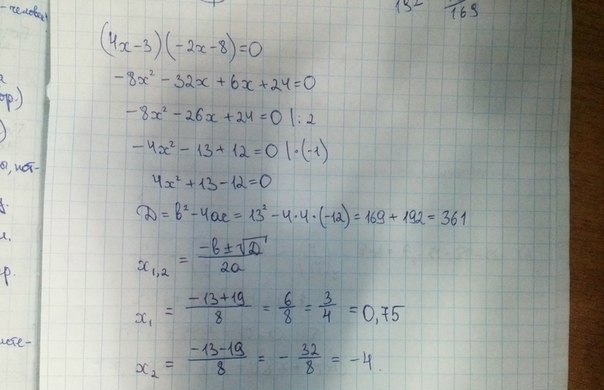 - человек
192
169
(4x-3)(-2x-8)=0
-8x² - 32x + 6x + 24 = 0
-8x² - 26x + 24 = 0 |: 2
-4x² - 13 + 12 = 0 |·(-1)
4x² + 13 - 12 = 0
D = b² - 4ac = 13² - 4·4·(-12) = 169 + 192 = 361
x₁,₂ = (-b ± √D) / 2a
x₁ = (-13+19)/8 = 6/8 = 3/4 = 0,75
x₂ = (-13-19)/8 = -32/8 = -4.